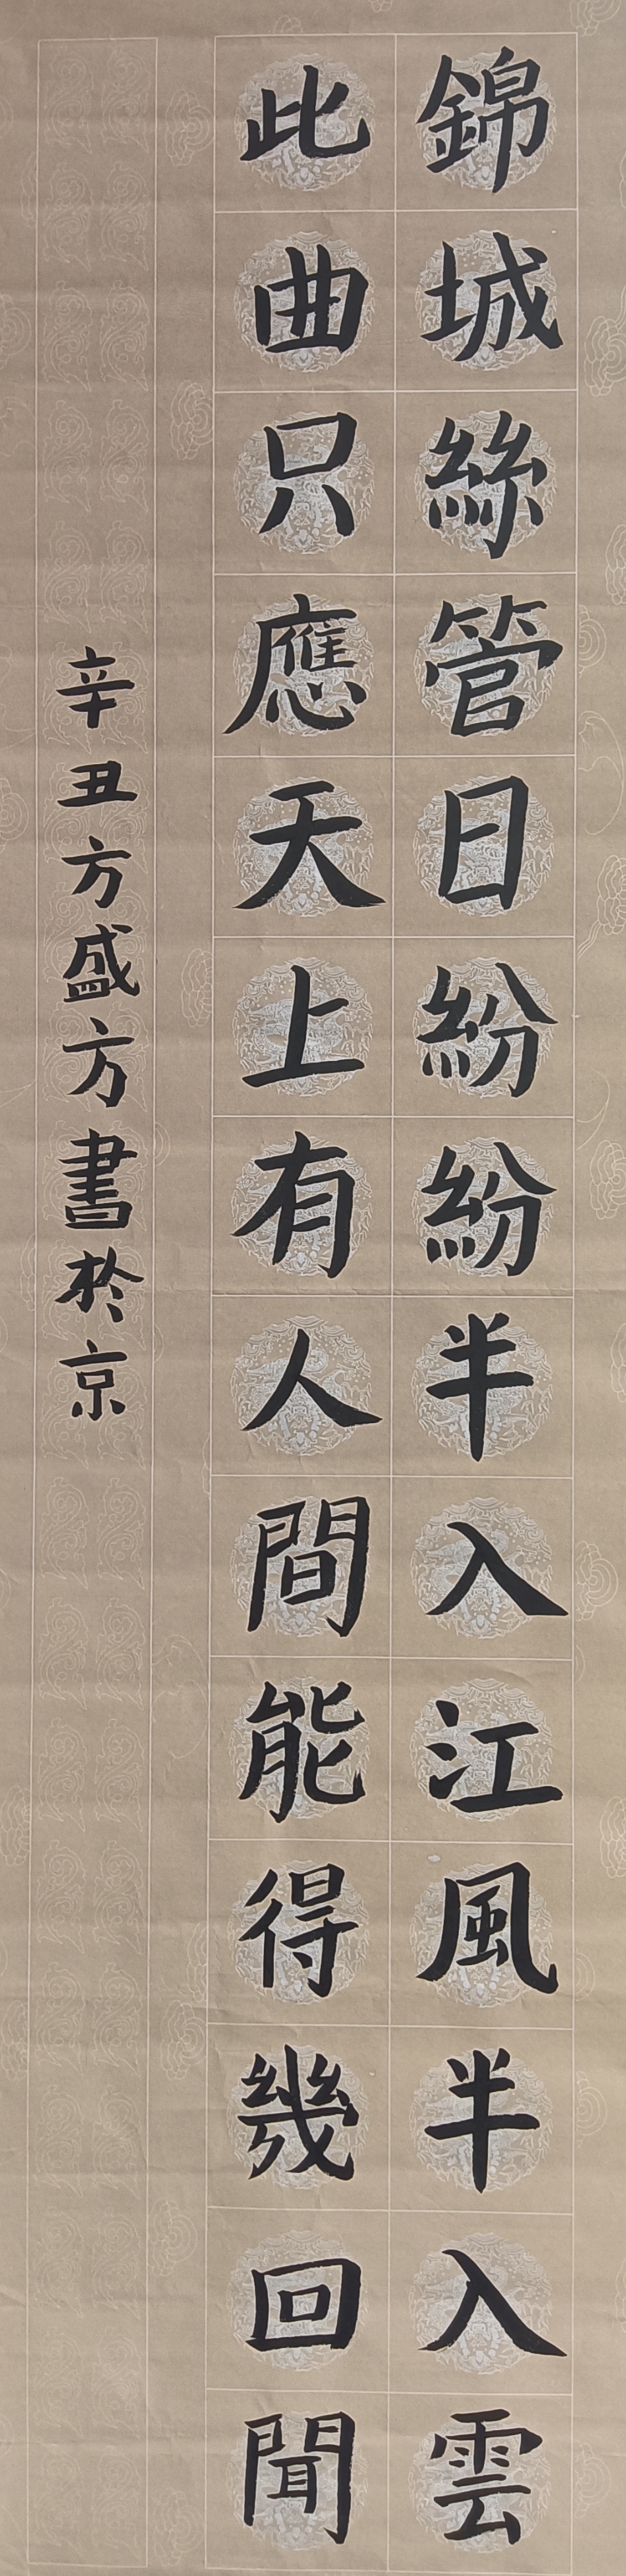 錦城絲管日紛紛半入江風半入雲
此曲只應天上有人間能得幾回聞
辛丑方盛方書於京